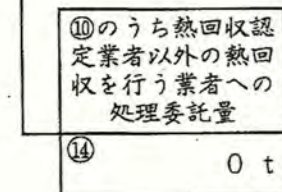 ⑩のうち熱回収認
定業者以外の熱回
収を行う業者への
処理委託量
⑭
0 t